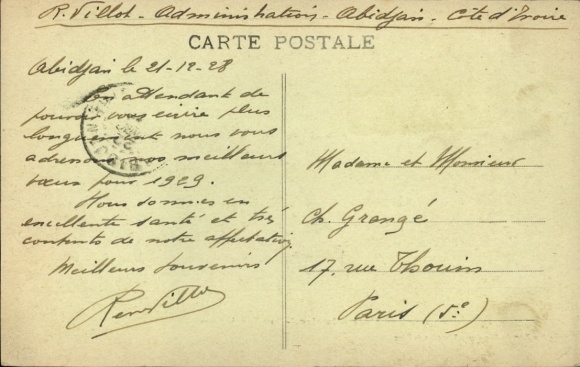 R. Villot - Administration - Abidjan - Côte d'Ivoire
CARTE POSTALE
Abidjan le 21-12-28
En attendant de
pouvoir vous écrire plus
longuement nous vous
adressons nos meilleurs
vœux pour 1929.
Nous sommes en
excellente santé et très
contents de notre affectation
Meilleurs souvenirs
Villot
Madame et Monsieur
Ch. Grangé
17, rue Thouin
Paris (5e)